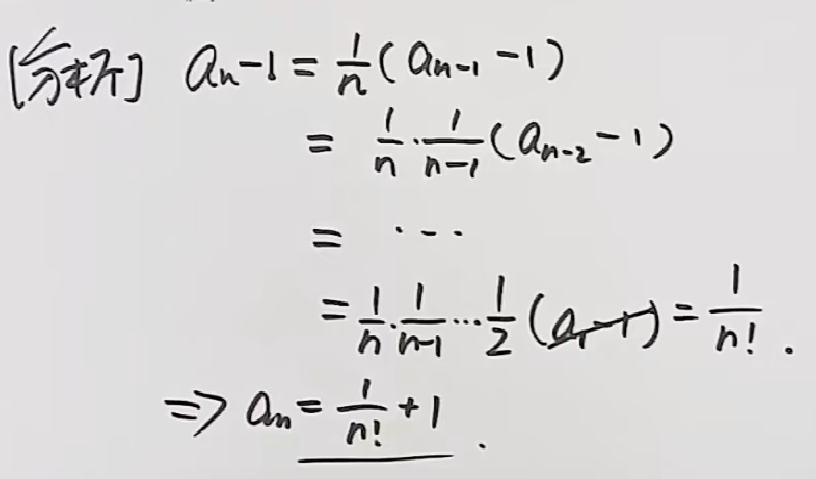 [分析] aₙ-1 = 1/n (aₙ₋₁ -1)
= 1/n · 1/(n-1) (aₙ₋₂ -1)
= ...
= 1/n · 1/(n-1) ... 1/2 (a₁-1) = 1/n! .
=> aₙ = 1/n! + 1 .